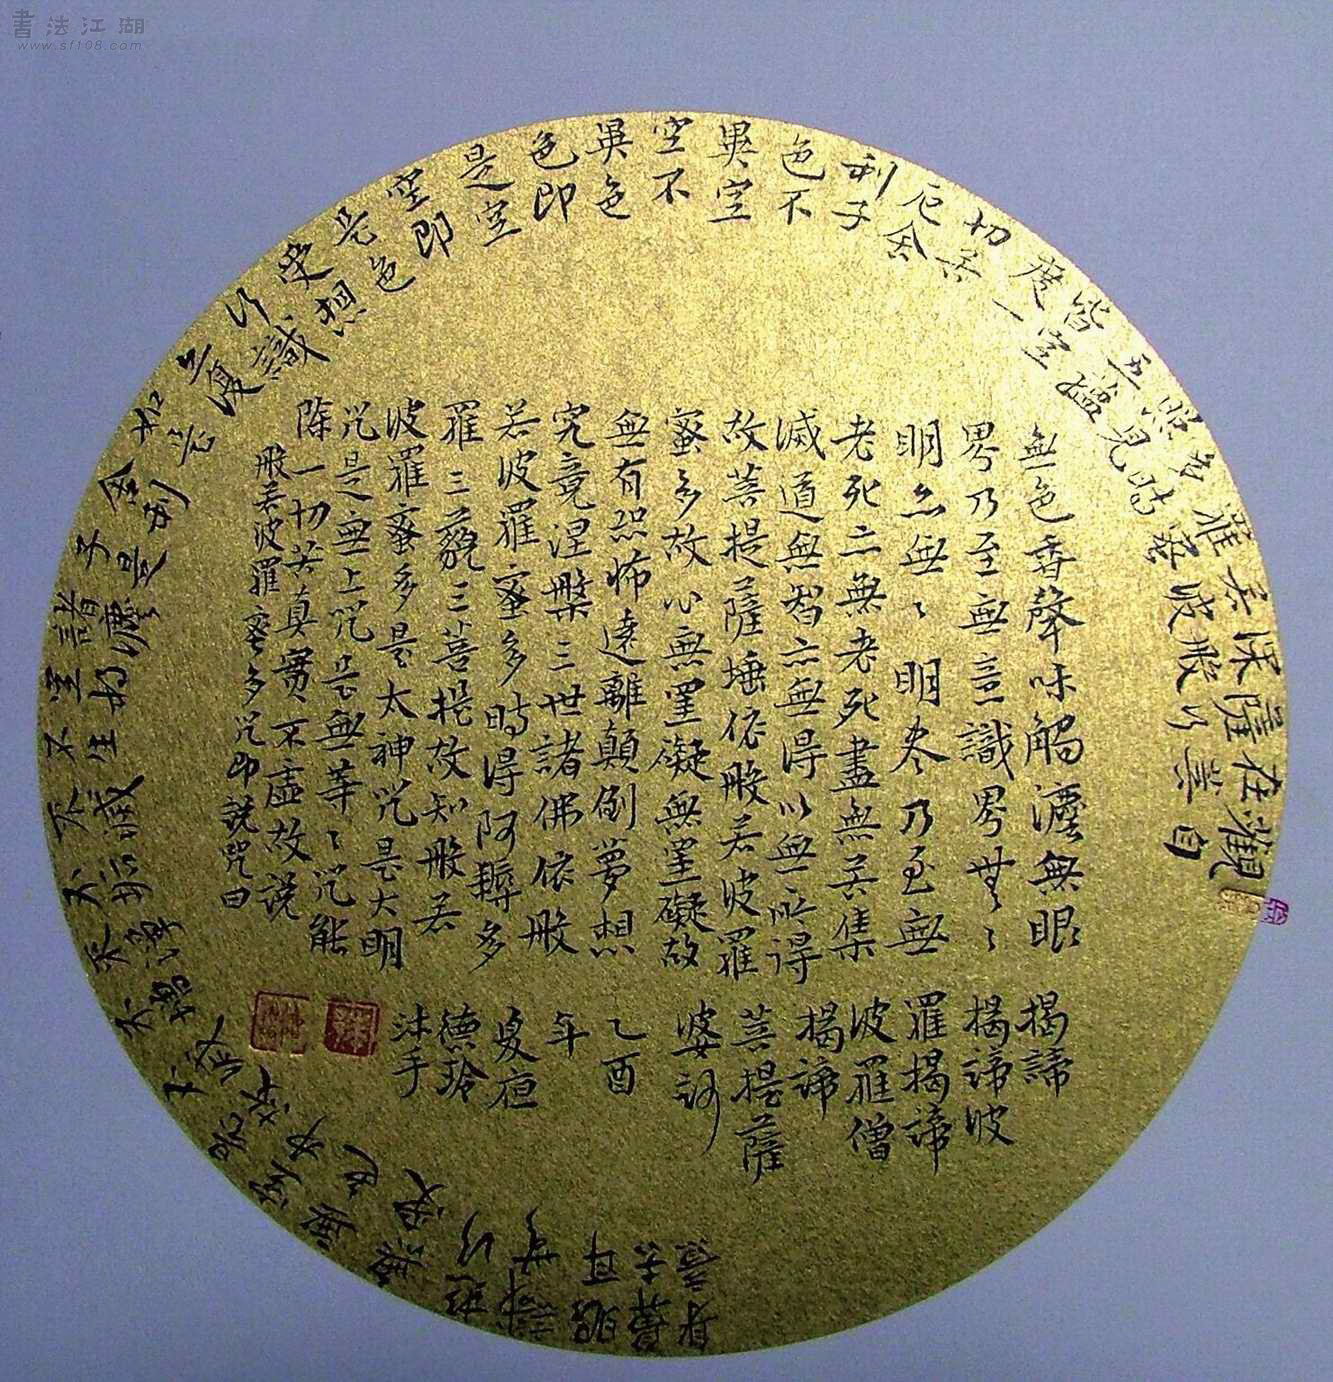 觀自
在菩
薩行
深般
若波
羅蜜
多時
照見
五蘊
皆空
度一
切苦
厄舍
利子
色不
異空
空不
異色
色即
是空
空即
是色
受想
行識
亦復
如是
舍利
子是
諸灋
空相
不生
不滅
不垢
不淨
不增
不減
是故
空中
無色
無受
想行
識無
眼耳
鼻舌
身意
無色香聲味觸灋無眼
界乃至無意識界無〻
明亦無〻明尽乃至無
老死亦無老死盡無苦集
滅道無智亦無得以無所得
故菩提薩埵依般若波羅
蜜多故心無罣礙無罣礙故
無有恐怖遠離顛倒夢想
究竟涅槃三世諸佛依般
若波羅蜜多時得阿耨多
羅三藐三菩提故知般若
波羅蜜多是大神咒是大明
咒是無上咒是無等〻咒能
除一切苦真實不虛故說
般若波羅蜜多咒即說咒曰
揭諦
揭諦波
羅揭諦
波羅僧
揭諦
菩提薩
婆訶
乙酉
年
夏夜
德玲
沐手
書法江湖
www.sf108.com